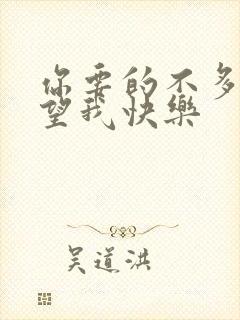 你要的不多
望我快樂
吴道洪